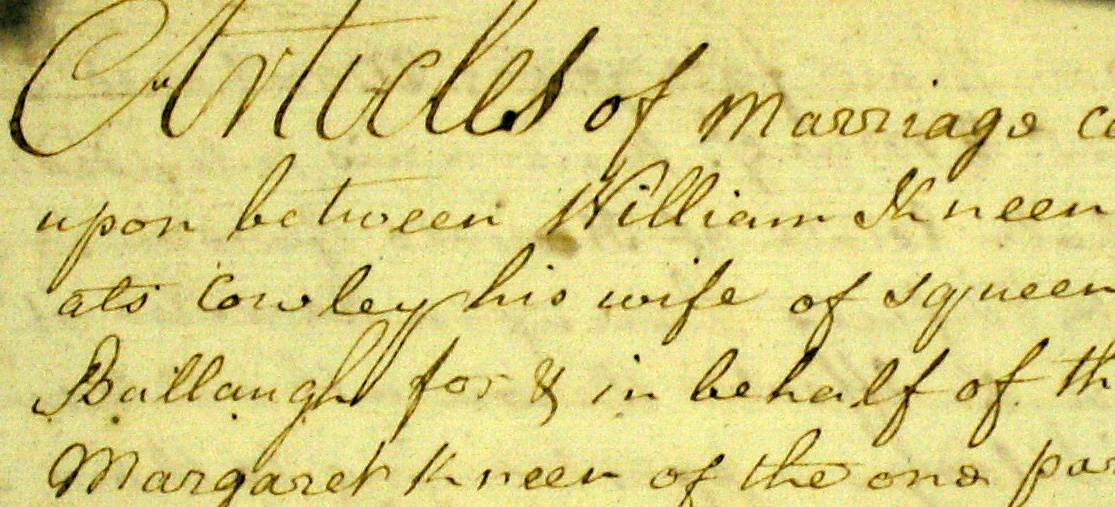 Articles of Marriage
upon between William Kneen
ats Cowley his wife of Squeen
Ballaugh for & in behalf of
Margaret Kneen of the one